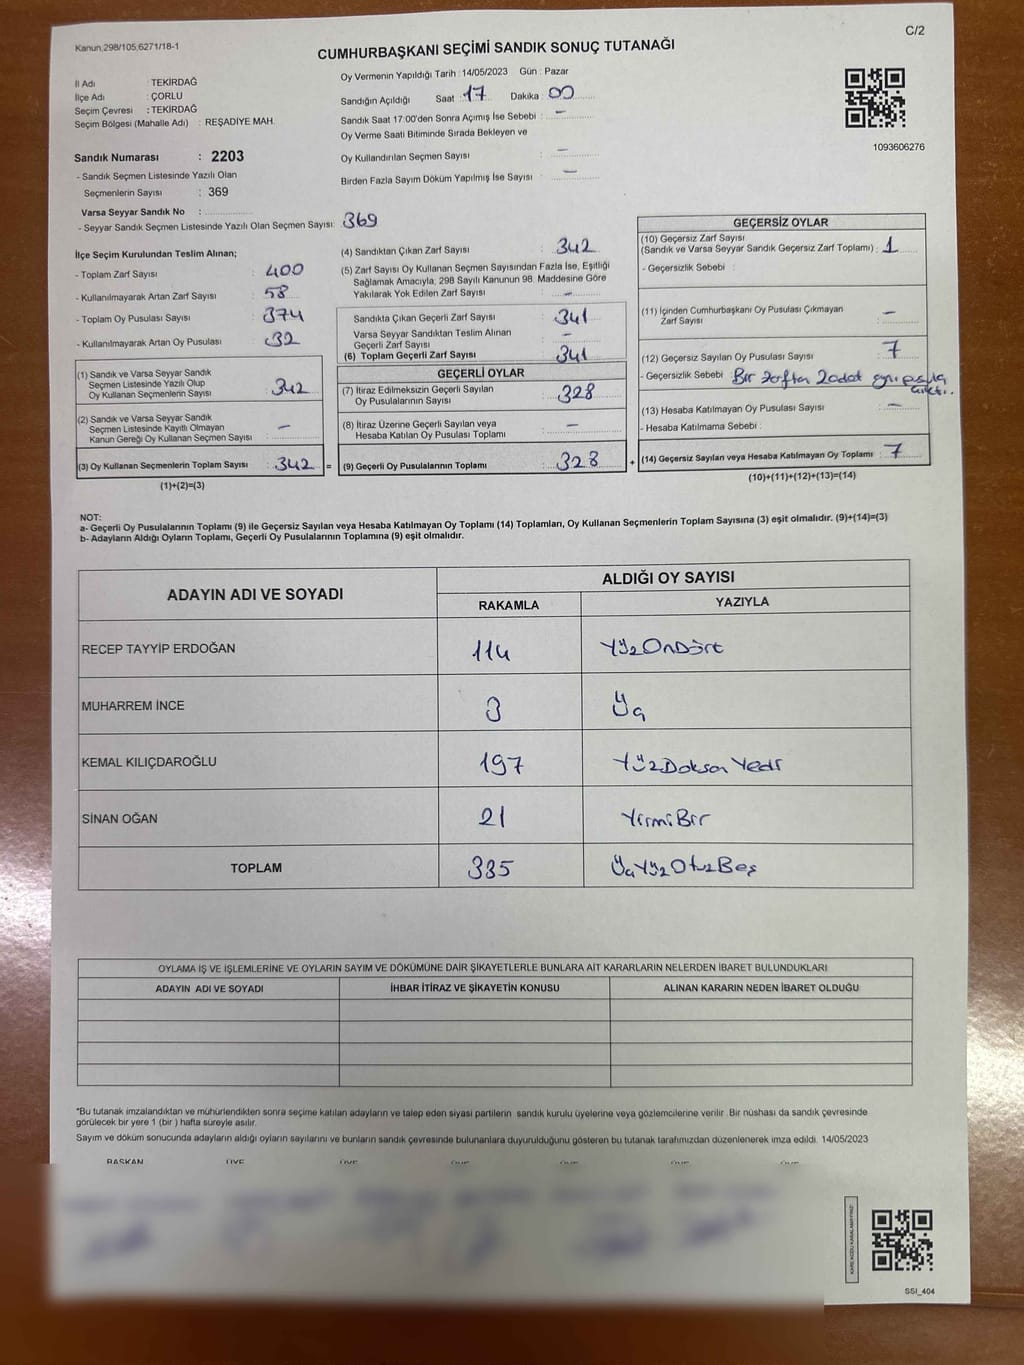 C/2
Kanun,298/105,6271/18-1
CUMHURBAŞKANI SEÇİMİ SANDIK SONUÇ TUTANAĞI
İl Adı : TEKİRDAĞ
İlçe Adı : ÇORLU
Seçim Çevresi : TEKİRDAĞ
Seçim Bölgesi (Mahalle Adı) : REŞADİYE MAH.
Oy Vermenin Yapıldığı Tarih : 14/05/2023 Gün : Pazar
Sandığın Açıldığı Saat : 17 Dakika : 00
Sandık Saat 17:00'den Sonra Açımış İse Sebebi : –
Oy Verme Saati Bitiminde Sırada Bekleyen ve
Oy Kullandırılan Seçmen Sayısı : –
Birden Fazla Sayım Döküm Yapılmış İse Sayısı : –
1093606276
Sandık Numarası : 2203
- Sandık Seçmen Listesinde Yazılı Olan
Seçmenlerin Sayısı : 369
Varsa Seyyar Sandık No :
- Seyyar Sandık Seçmen Listesinde Yazılı Olan Seçmen Sayısı: 369
İlçe Seçim Kurulundan Teslim Alınan;
- Toplam Zarf Sayısı : 400
- Kullanılmayarak Artan Zarf Sayısı : 58
- Toplam Oy Pusulası Sayısı : 374
- Kullanılmayarak Artan Oy Pusulası : 32
(1) Sandık ve Varsa Seyyar Sandık
Seçmen Listesinde Yazılı Olup
Oy Kullanan Seçmenlerin Sayısı : 342
(2) Sandık ve Varsa Seyyar Sandık
Seçmen Listesinde Kayıtlı Olmayan
Kanun Gereği Oy Kullanan Seçmen Sayısı : –
(3) Oy Kullanan Seçmenlerin Toplam Sayısı : 342 =
(1)+(2)=(3)
(4) Sandıktan Çıkan Zarf Sayısı : 342
(5) Zarf Sayısı Oy Kullanan Seçmen Sayısından Fazla İse, Eşitliği
Sağlamak Amacıyla, 298 Sayılı Kanunun 98. Maddesine Göre
Yakılarak Yok Edilen Zarf Sayısı : –
Sandıkta Çıkan Geçerli Zarf Sayısı : 341
Varsa Seyyar Sandıktan Teslim Alınan
Geçerli Zarf Sayısı : –
(6) Toplam Geçerli Zarf Sayısı : 341
GEÇERLİ OYLAR
(7) İtiraz Edilmeksizin Geçerli Sayılan
Oy Pusulalarının Sayısı : 328
(8) İtiraz Üzerine Geçerli Sayılan veya
Hesaba Katılan Oy Pusulası Toplamı : –
(9) Geçerli Oy Pusulalarının Toplamı : 328 +
GEÇERSİZ OYLAR
(10) Geçersiz Zarf Sayısı
(Sandık ve Varsa Seyyar Sandık Geçersiz Zarf Toplamı) : 1
- Geçersizlik Sebebi :
(11) İçinden Cumhurbaşkanı Oy Pusulası Çıkmayan
Zarf Sayısı : –
(12) Geçersiz Sayılan Oy Pusulası Sayısı : 7
- Geçersizlik Sebebi : Bir zarftan 2 adet oy pusula
çıktı..
(13) Hesaba Katılmayan Oy Pusulası Sayısı : –
- Hesaba Katılmama Sebebi :
(14) Geçersiz Sayılan veya Hesaba Katılmayan Oy Toplamı : 7
(10)+(11)+(12)+(13)=(14)
NOT:
a- Geçerli Oy Pusulalarının Toplamı (9) ile Geçersiz Sayılan veya Hesaba Katılmayan Oy Toplamı (14) Toplamları, Oy Kullanan Seçmenlerin Toplam Sayısına (3) eşit olmalıdır. (9)+(14)=(3)
b- Adayların Aldığı Oyların Toplamı, Geçerli Oy Pusulalarının Toplamına (9) eşit olmalıdır.
ADAYIN ADI VE SOYADI ALDIĞI OY SAYISI
RAKAMLA YAZIYLA
RECEP TAYYİP ERDOĞAN 114 YüzOnDört
MUHARREM İNCE 3 Üç
KEMAL KILIÇDAROĞLU 197 YüzDoksanYedi
SİNAN OĞAN 21 YirmiBir
TOPLAM 335 ÜçYüzOtuzBeş
OYLAMA İŞ VE İŞLEMLERİNE VE OYLARIN SAYIM VE DÖKÜMÜNE DAİR ŞİKAYETLERLE BUNLARA AİT KARARLARIN NELERDEN İBARET BULUNDUKLARI
ADAYIN ADI VE SOYADI İHBAR İTİRAZ VE ŞİKAYETİN KONUSU ALINAN KARARIN NEDEN İBARET OLDUĞU
*Bu tutanak imzalandıktan ve mühürlendikten sonra seçime katılan adayların ve talep eden siyasi partilerin sandık kurulu üyelerine veya gözlemcilerine verilir. Bir nüshası da sandık çevresinde
görülecek bir yere 1 (bir ) hafta süreyle asılır.
Sayım ve döküm sonucunda adayların aldığı oyların sayılarını ve bunların sandık çevresinde bulunanlara duyurulduğunu gösteren bu tutanak tarafımızdan düzenlenerek imza edildi. 14/05/2023
BAŞKAN ÜYE ÜYE ÜYE ÜYE ÜYE ÜYE
SSI_404